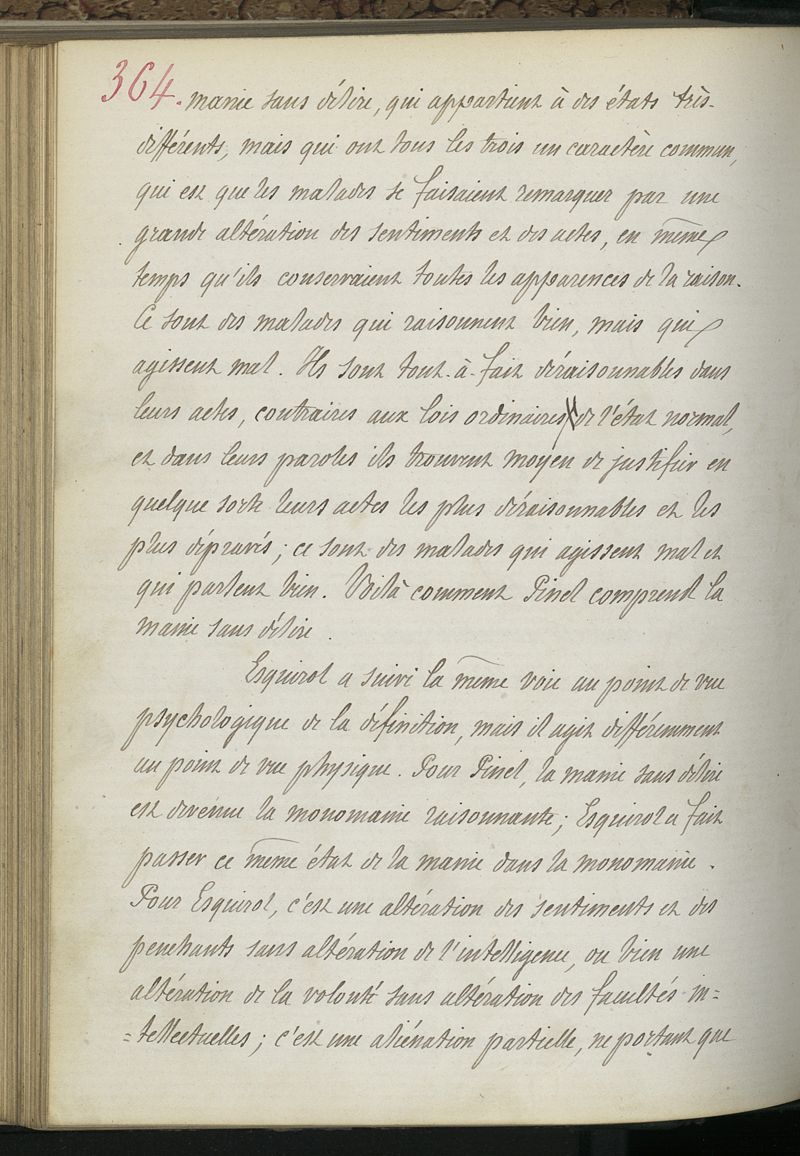 364. manie sans délire, qui appartient à des états très-
différents, mais qui ont tous les trois un caractère commun,
qui est que les malades se faisaient remarquer par une
grande altération des sentiments et des actes, en même
temps qu'ils conservaient toutes les apparences de la raison.
Ce sont des malades qui raisonnent bien, mais qui
agissent mal. Ils sont tout-à-fait déraisonnables dans
leurs actes, contraires aux lois ordinaires de l'état normal,
et dans leurs paroles ils trouvent moyen de justifier en
quelque sorte leurs actes les plus déraisonnables et les
plus dépravés; ce sont des malades qui agissent mal et
qui parlent bien. Voilà comment Pinel comprend la
manie sans délire.
Esquirol a suivi la même voie au point de vue
psychologique de la définition, mais il agit différemment
au point de vue physique. Pour Pinel, la manie sans délire
est devenue la monomanie raisonnante; Esquirol a fait
passer ce même état de la manie dans la monomanie.
Pour Esquirol, c'est une altération des sentiments et des
penchants sans altération de l'intelligence, ou bien une
altération de la volonté sans altération des facultés in=
=tellectuelles; c'est une aliénation partielle, ne portant que